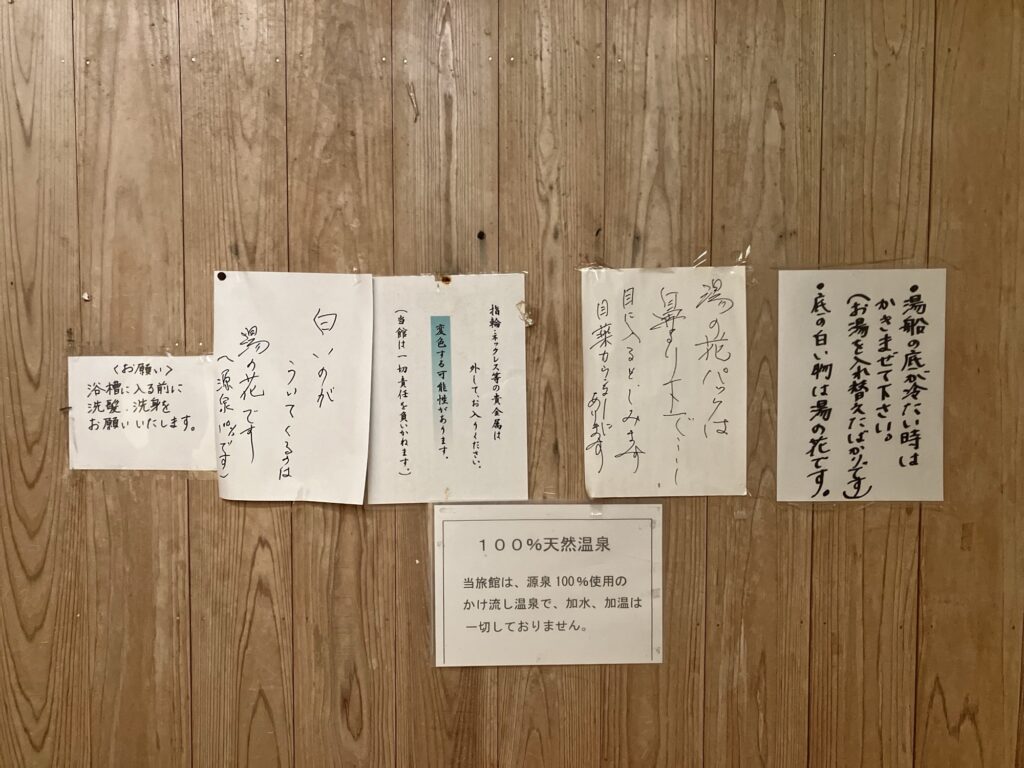 〈お願い〉
浴槽に入る前に
洗髪、洗身を
お願いいたします。
白いのが
ういてくるのは
湯の花です
(源泉100%です)
指輪・ネックレス等の貴金属は
外して、お入りください。
変色する可能性があります。
(当館は一切責任を負いかねます。)
湯の花パックは
鼻より下上で
目に入るとしみます
目薬カウンターに
あります
・湯船の底が冷たい時は
かきまぜて下さい。
(お湯を入れ替えたばかりです)
・底の白い物は湯の花です。
100%天然温泉
当旅館は、源泉100%使用の
かけ流し温泉で、加水、加温は
一切しておりません。